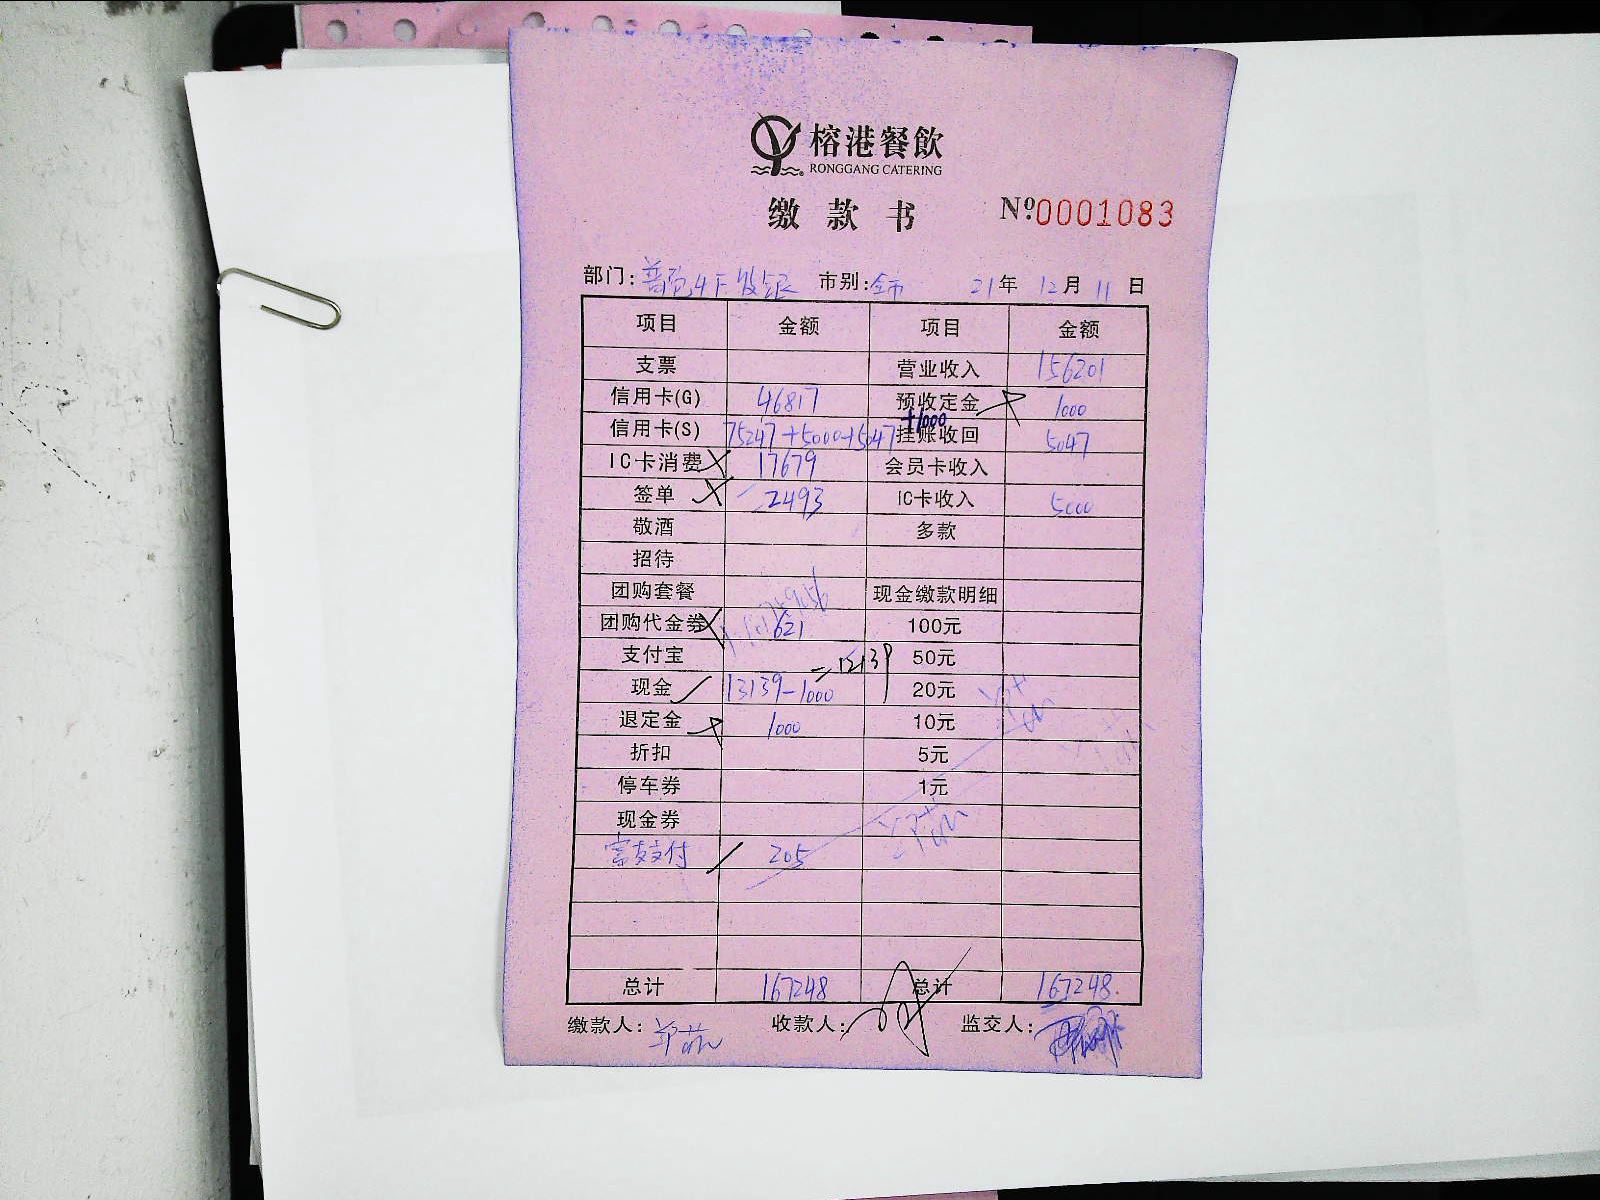 榕港餐飲
RONGGANG CATERING
缴款书
Nº0001083
部门: 市别: 21年 12月 11日
项目 金额 项目 金额
支票 营业收入 156201
信用卡(G) 46817 预收定金 1000
+1000
信用卡(S) 75247+5000+5047 挂账收回 5047
IC卡消费 17679 会员卡收入
签单 2493 IC卡收入 5000
敬酒 多款
招待
团购套餐 现金缴款明细
团购代金券 621 100元
支付宝 50元
=12139
现金 13139-1000 20元
退定金 1000 10元
折扣 5元
停车券 1元
现金券
富友支付 205
总计 167248 总计 167248
缴款人: 收款人: 监交人: